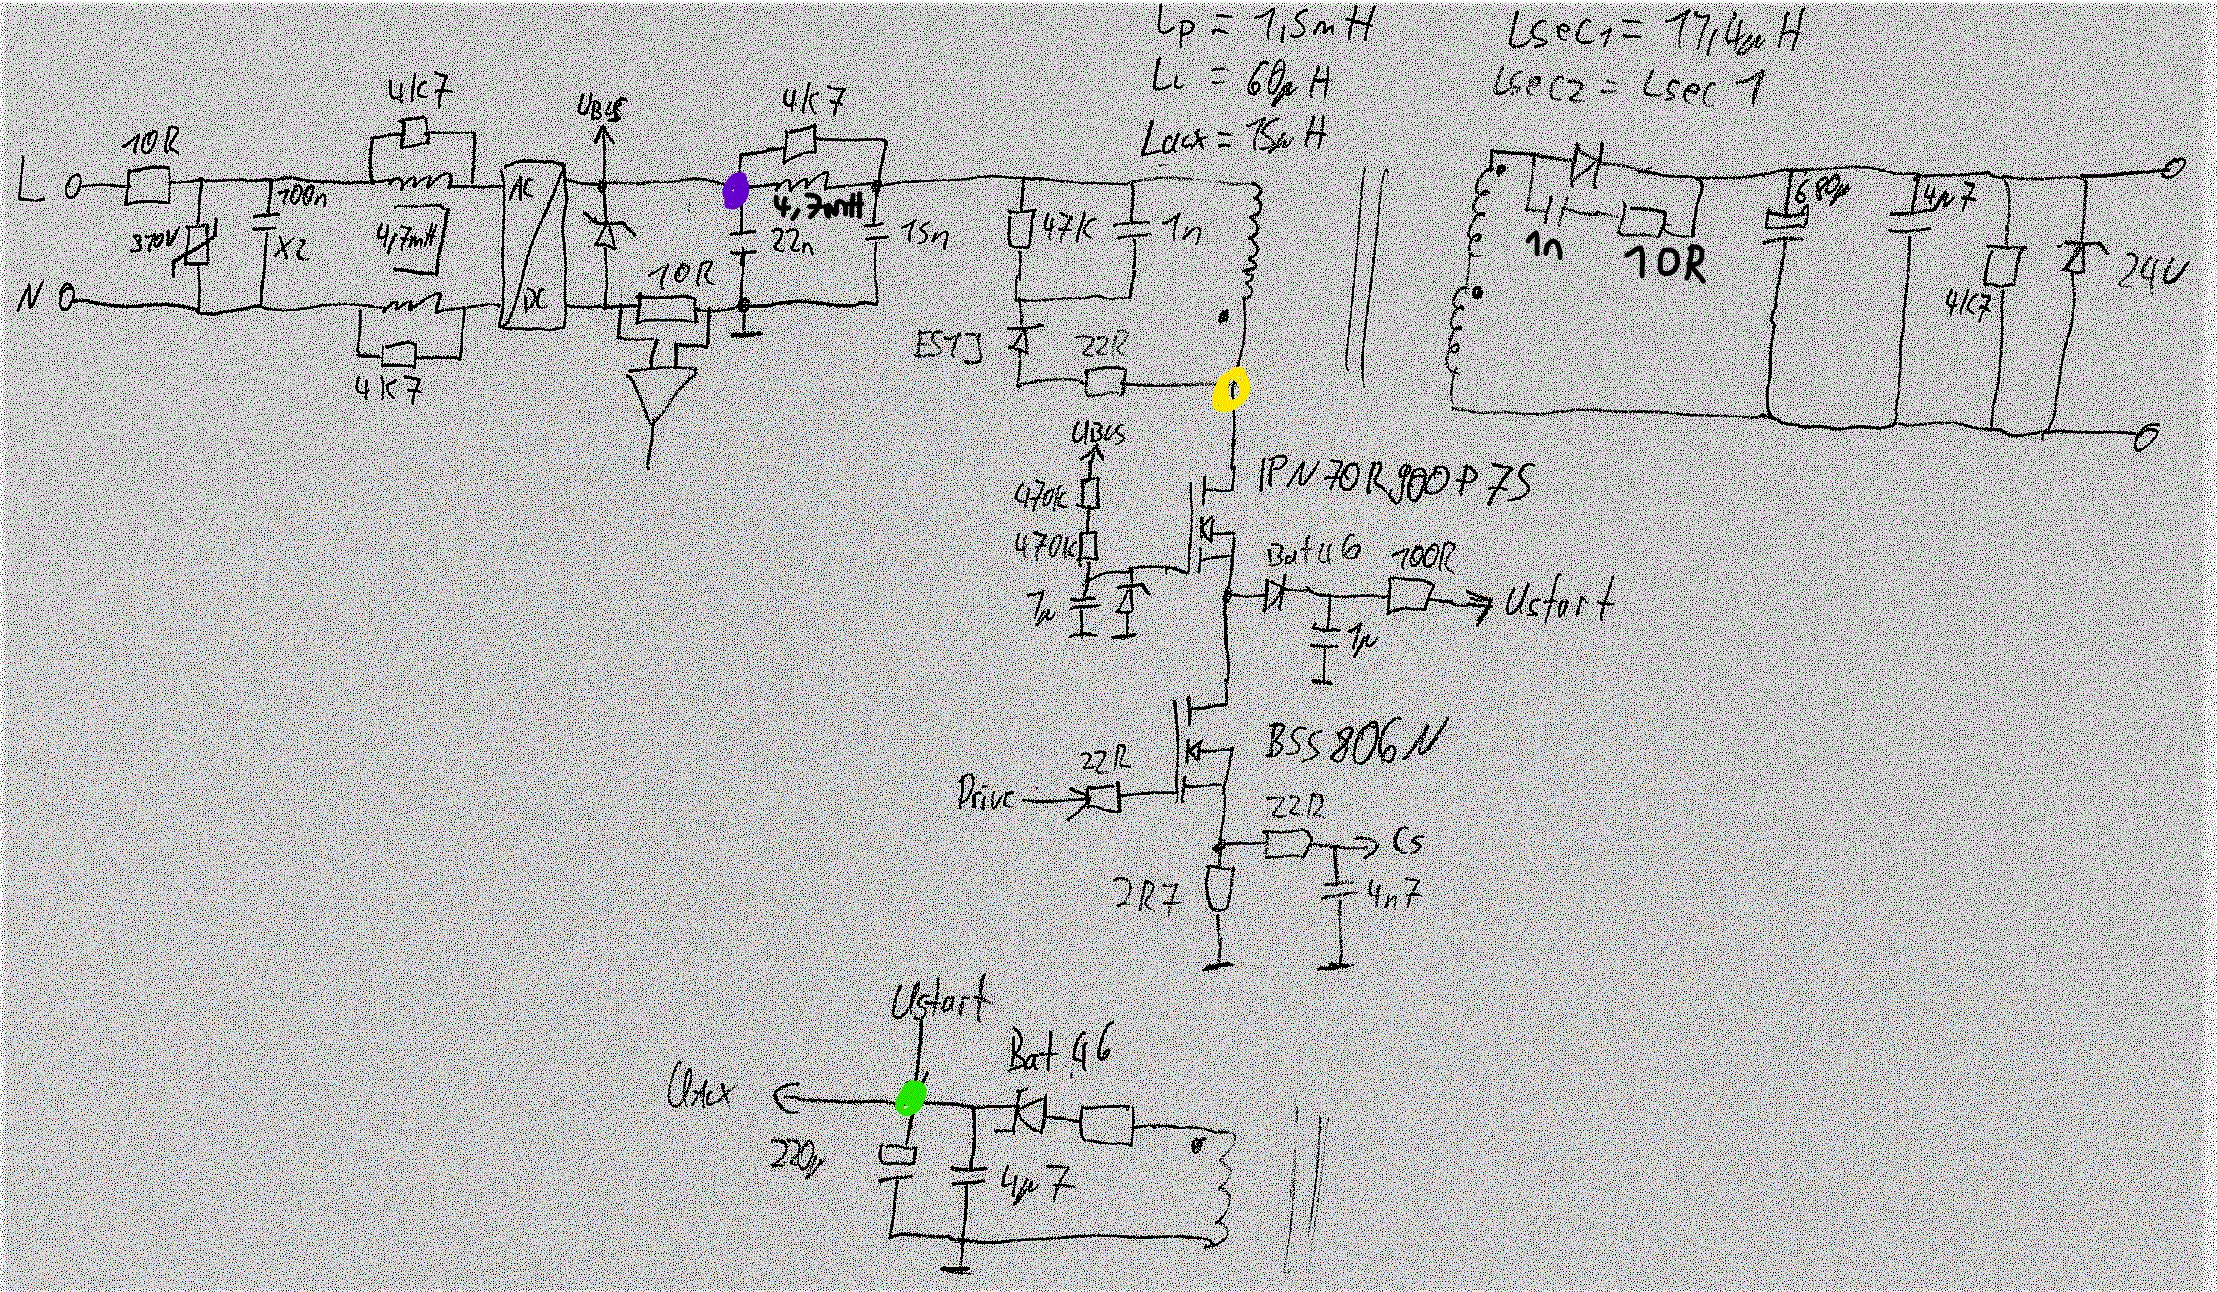 Lp = 1,5mH
LL = 60µH
Laux = 15µH
Lsec1 = 17,4µH
Lsec2 = Lsec1
L
10R
4k7
100n
X2
370V
4,7mH
N
4k7
AC
DC
UBUS
10R
4k7
4,7mH
22n
15n
47k
1n
ES1J
22R
1n
10R
680µ
4µ7
4k7
24V
UBUS
470k
470k
1µ
IPN70R900P7S
Bat46
100R
Ustart
1µ
BSS806N
Drive
22R
22R
Cs
2R7
4n7
Ustart
UAux
Bat46
220µ
4µ7